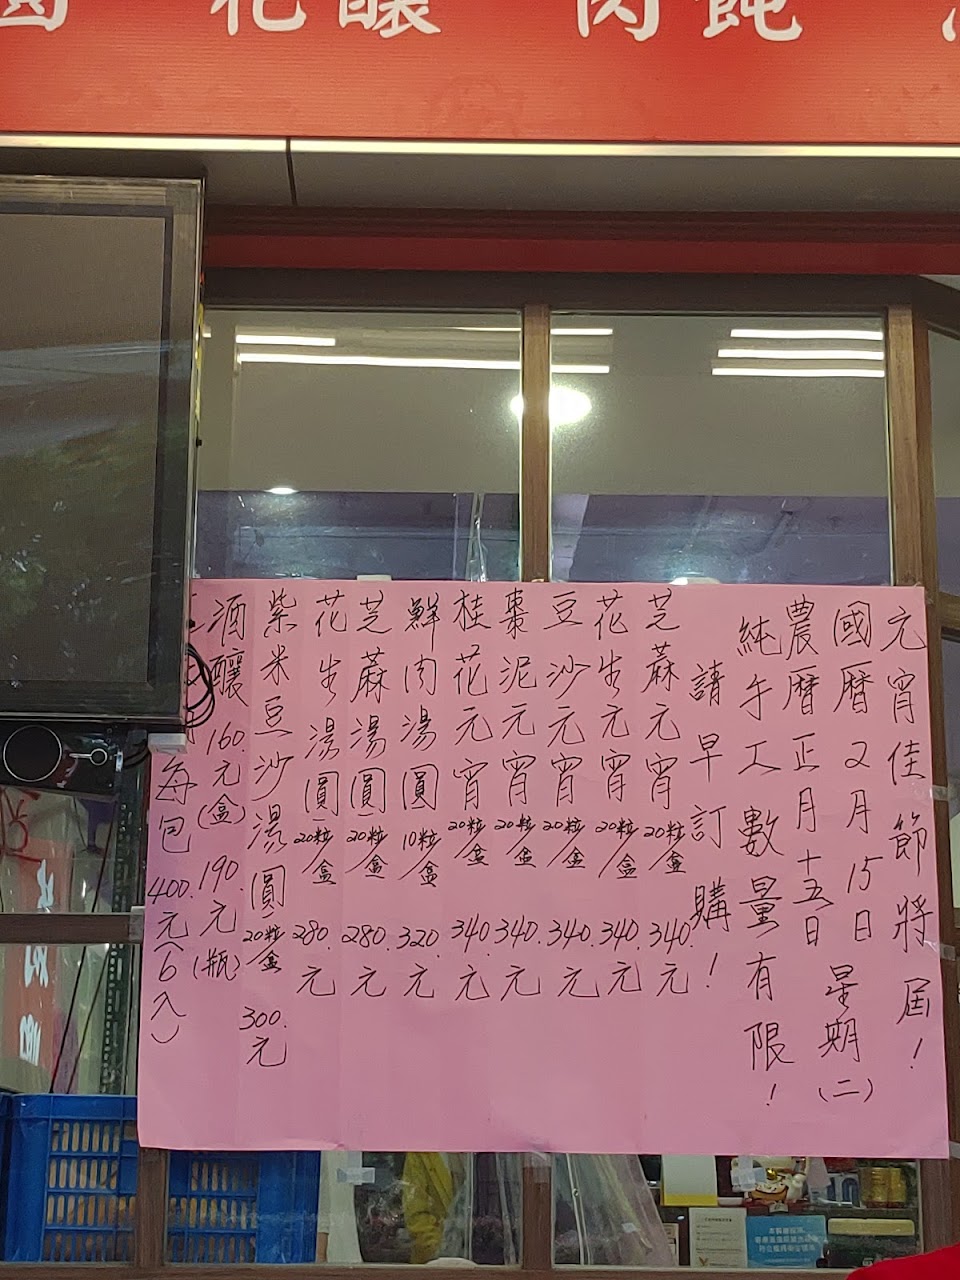 花釀 肉飩
元宵佳節將屆！
國曆2月15日 星期(二)
農曆正月十五日
純手工數量有限！
請早訂購！
芝蔴元宵20粒/盒 340.元
花生元宵20粒/盒 340.元
豆沙元宵20粒/盒 340.元
棗泥元宵20粒/盒 340.元
桂花元宵20粒/盒 340.元
鮮肉湯圓10粒/盒 320.元
芝蔴湯圓20粒/盒 280.元
花生湯圓20粒/盒 280.元
紫米豆沙湯圓20粒/盒 300.元
酒釀 160.元(盒) 190.元(瓶)
每包 400.元(6入)